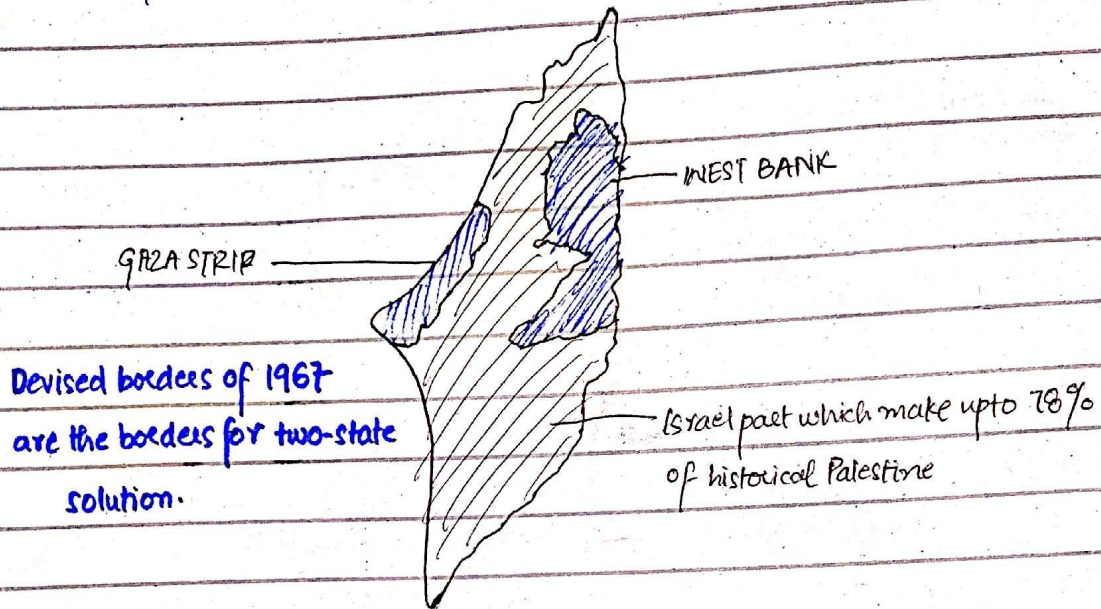 WEST BANK
GAZA STRIP
Devised borders of 1967
are the borders for two-state
solution.
Israel part which make upto 78%
of historical Palestine